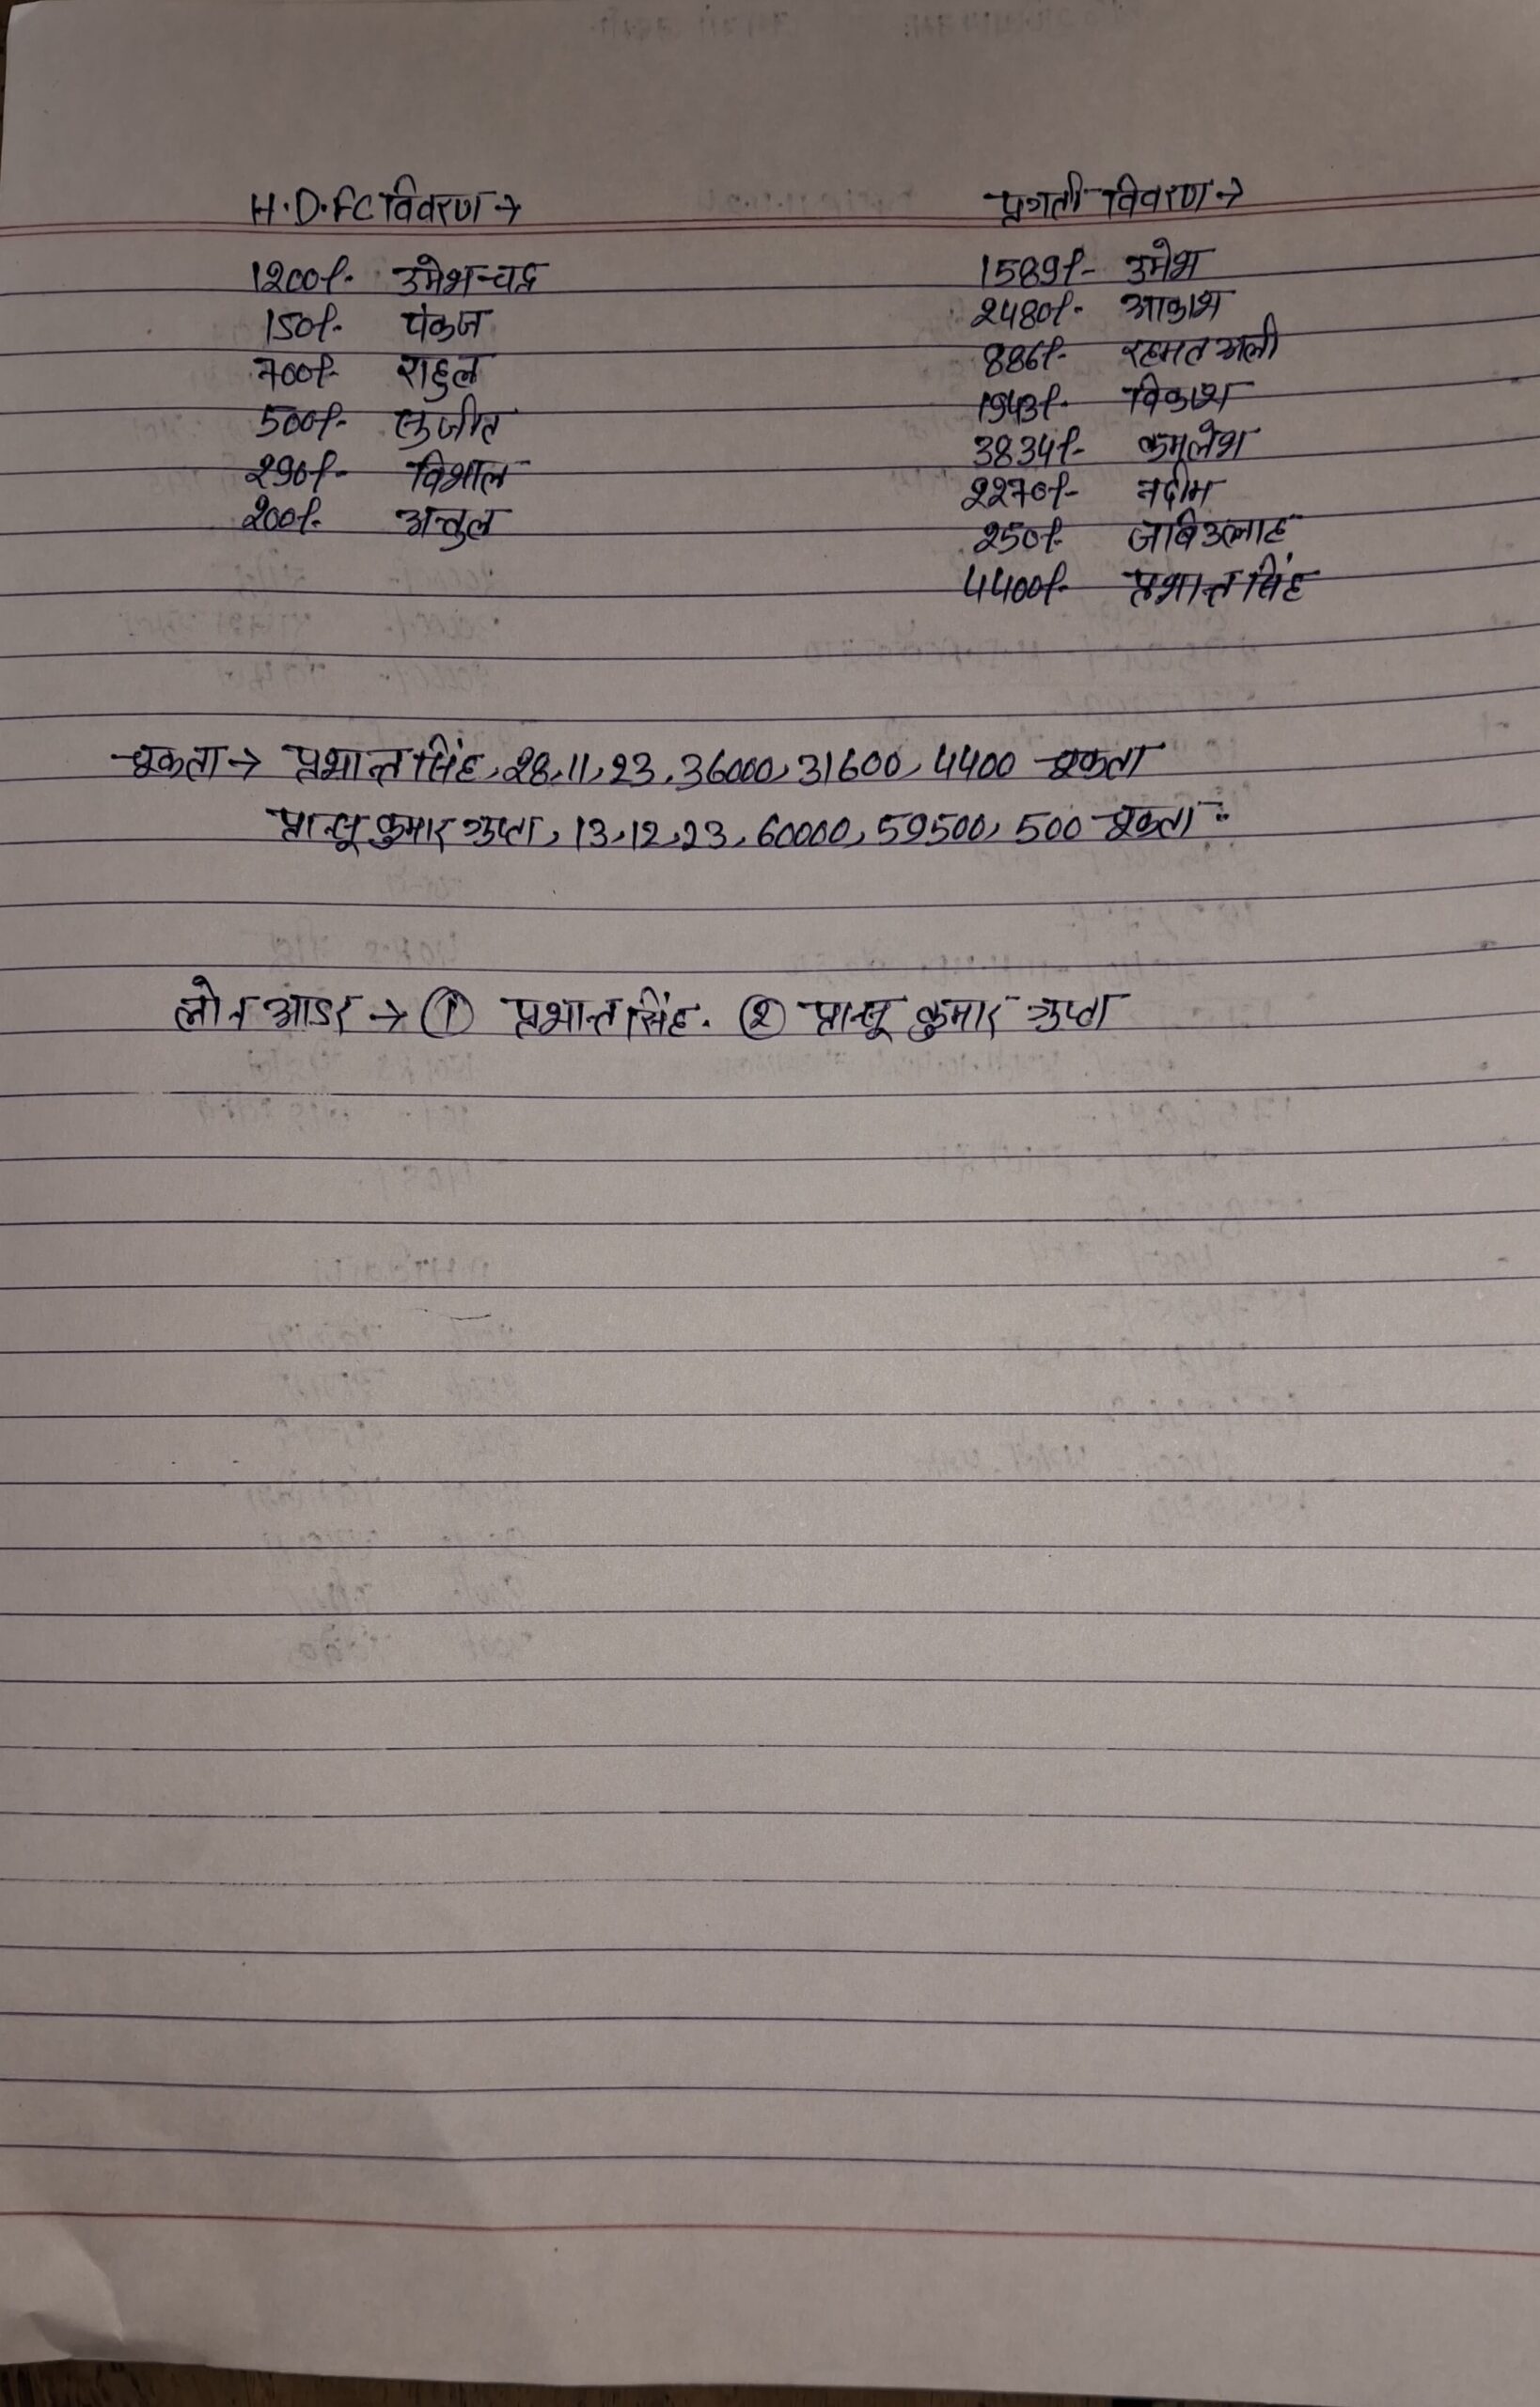 H.D.FC विवरण →
1200/- उमेश चन्द्र
150/- पंकज
700/- राहुल
500/- सुजीत
290/- विशाल
200/- अतुल
प्रगती विवरण →
1589/- उमेश
2480/- आकाश
886/- रहमत अली
1943/- विकाश
3834/- कमलेश
2270/- नदीम
250/- जबिउल्लाह
4400/- प्रशान्त सिंह
चुकता → प्रशान्त सिंह, 28,11,23, 36000, 31600, 4400 चुकता
प्रान्शू कुमार गुप्ता, 13,12,23, 60000, 59500, 500 चुकता
लोन आडर → ① प्रशान्त सिंह. ② प्रान्शू कुमार गुप्ता